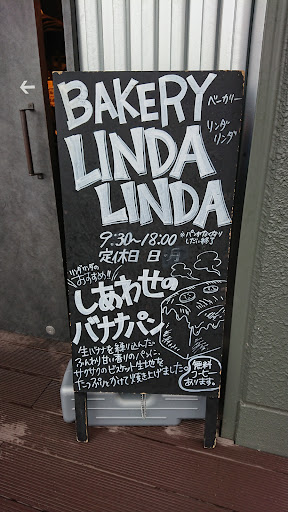 BAKERY
ベーカリー
LINDA
リンダ
リンダ
LINDA
9:30~18:00
※パンがなくなり
しだい終了
定休日 日・月
リンダリンダの
おすすめ!!
しあわせの
バナナパン
生バナナを練り込んだ
ふんわり甘い香りのパンに、
サクサクのビスケット生地を
たっぷりとかけて焼き上げました。
無料
コーヒー
あります。